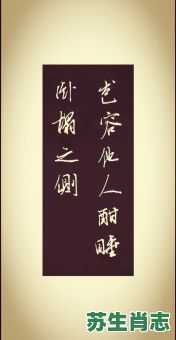 包容他人酣睡
卧榻之侧
苏生肖志